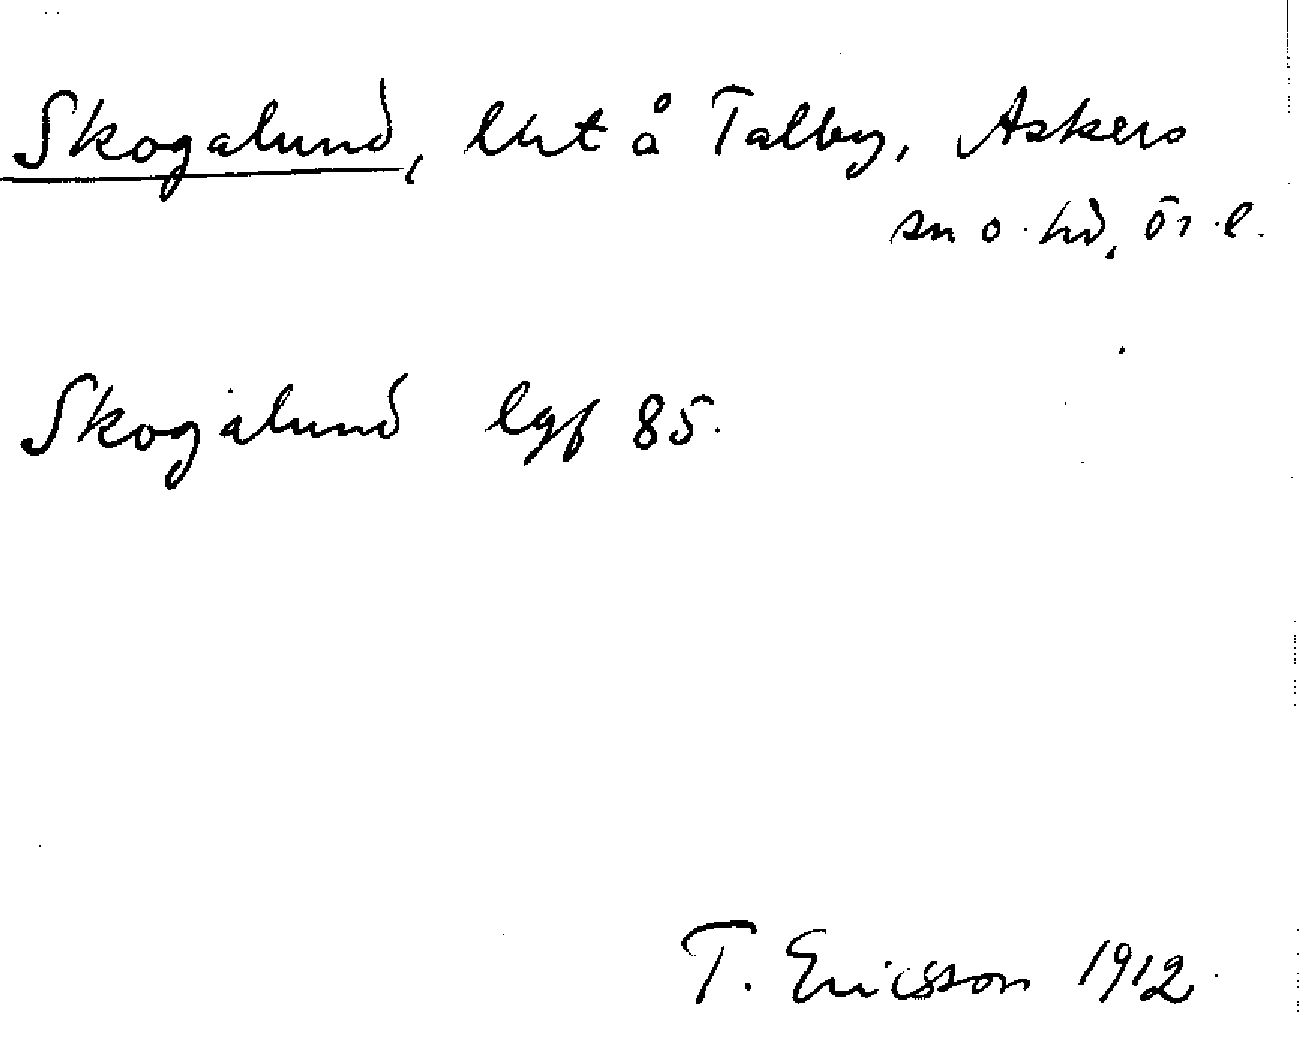 Skogalund, lht å Talby, Askers
sn o. hd, Ör. l.
Skogalund lgf 85.
T. Ericsson 1912.